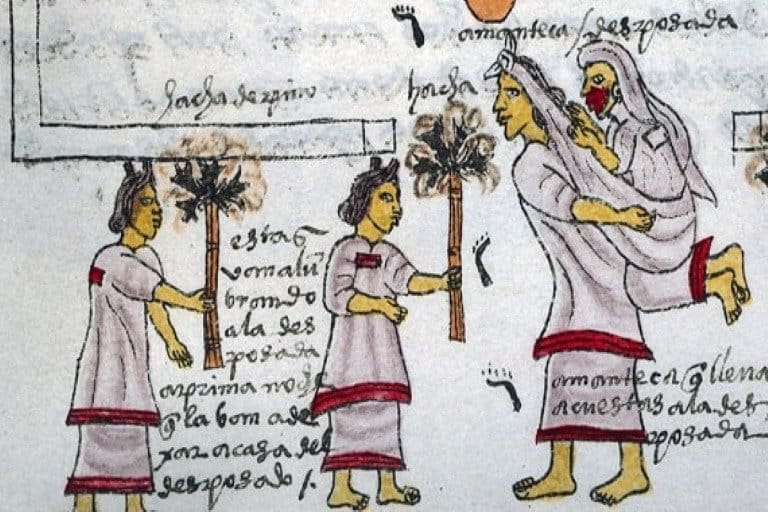 amanteca / desposada
hacha de pino
hacha
estas q̃
van alũ
brando
ala des
posada
a prima noche
q̃ la van a de
xar a casa del
desposado /.
amanteca q̃ lleva
acuestas ala des
posada